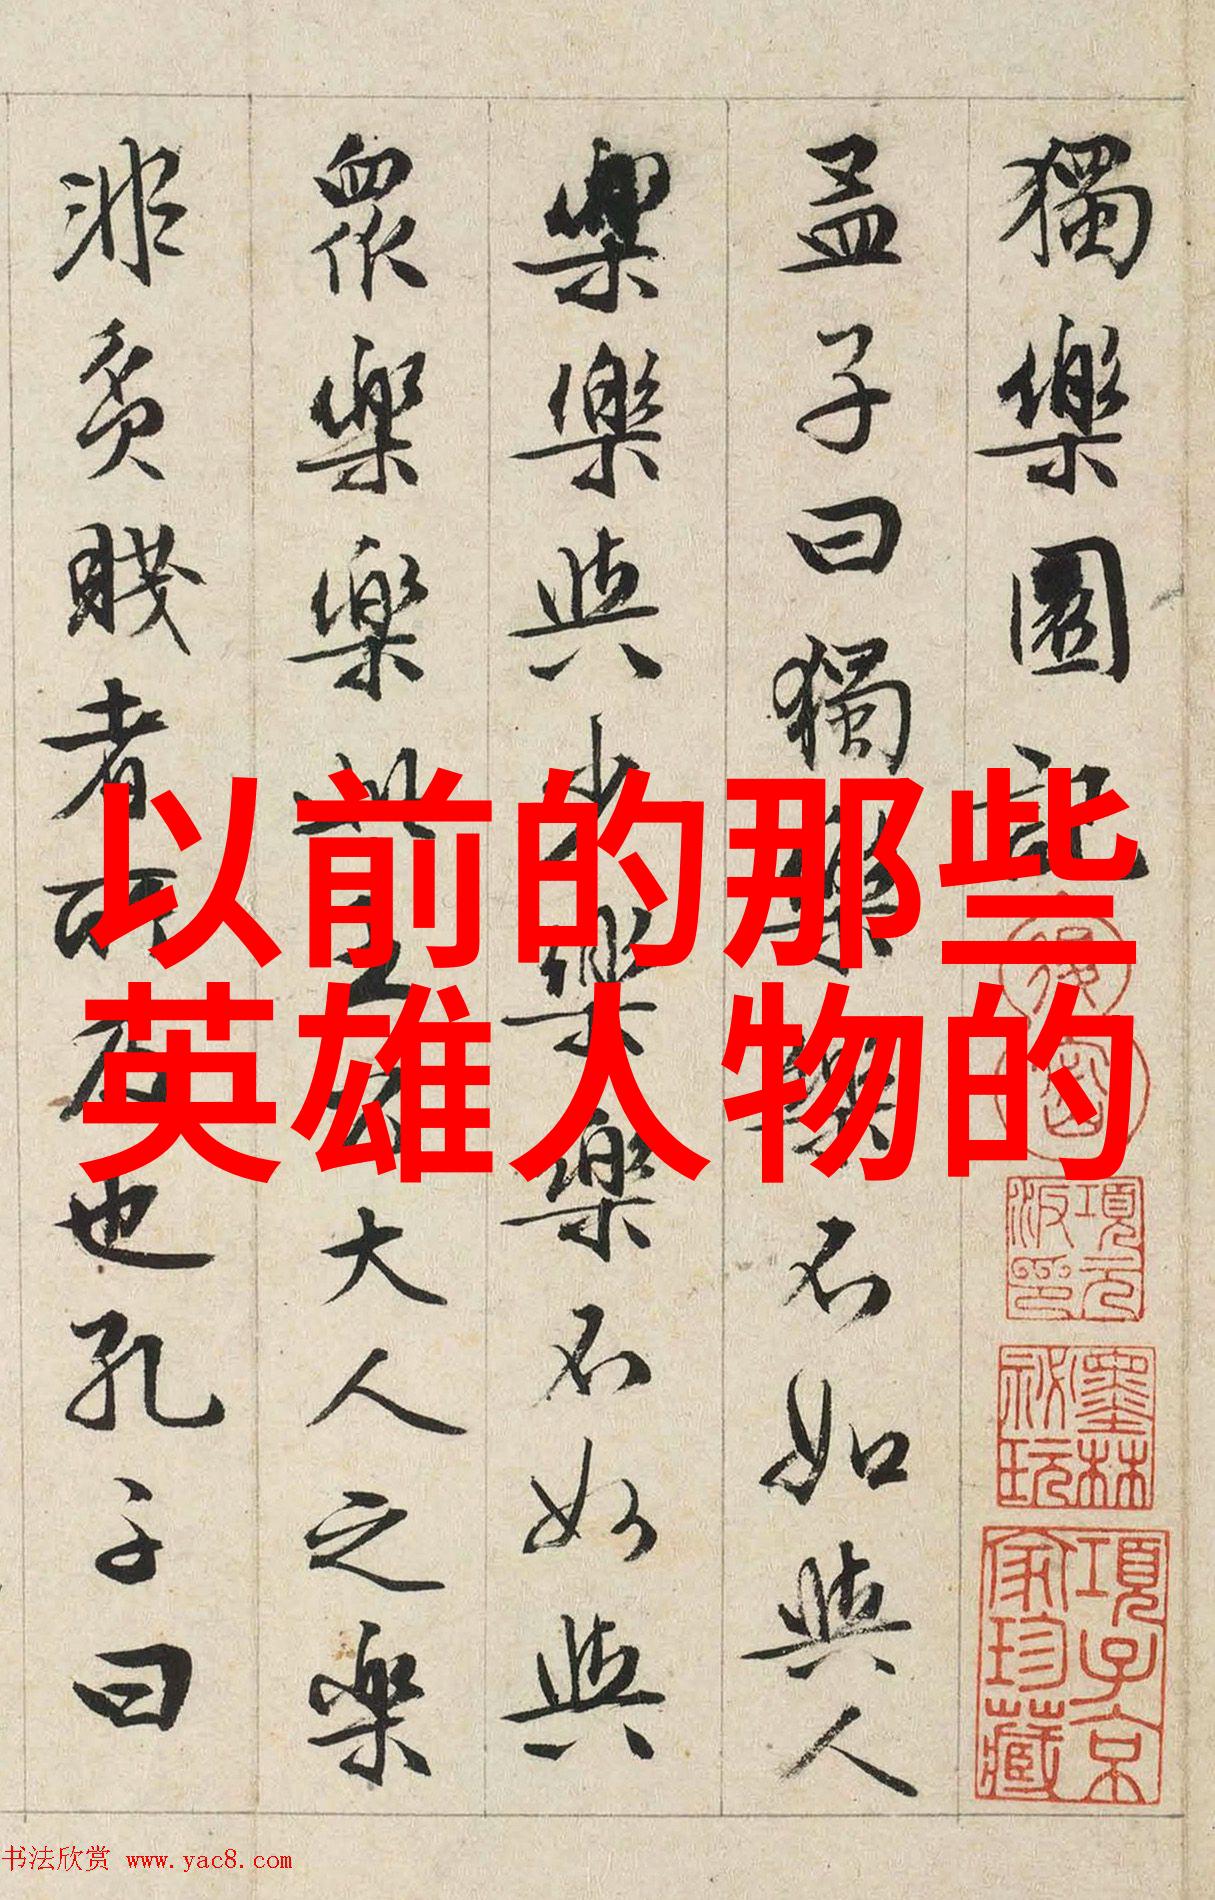 以前的那些
英雄人物的
獨樂園記
孟子曰獨樂樂不如與人
樂樂與少樂樂不如與
眾樂樂此王公大人之樂
非貧賤者所及也孔子曰
項元汴印
墨林祕玩
項子京家珍藏
书法欣赏 www.yac8.com